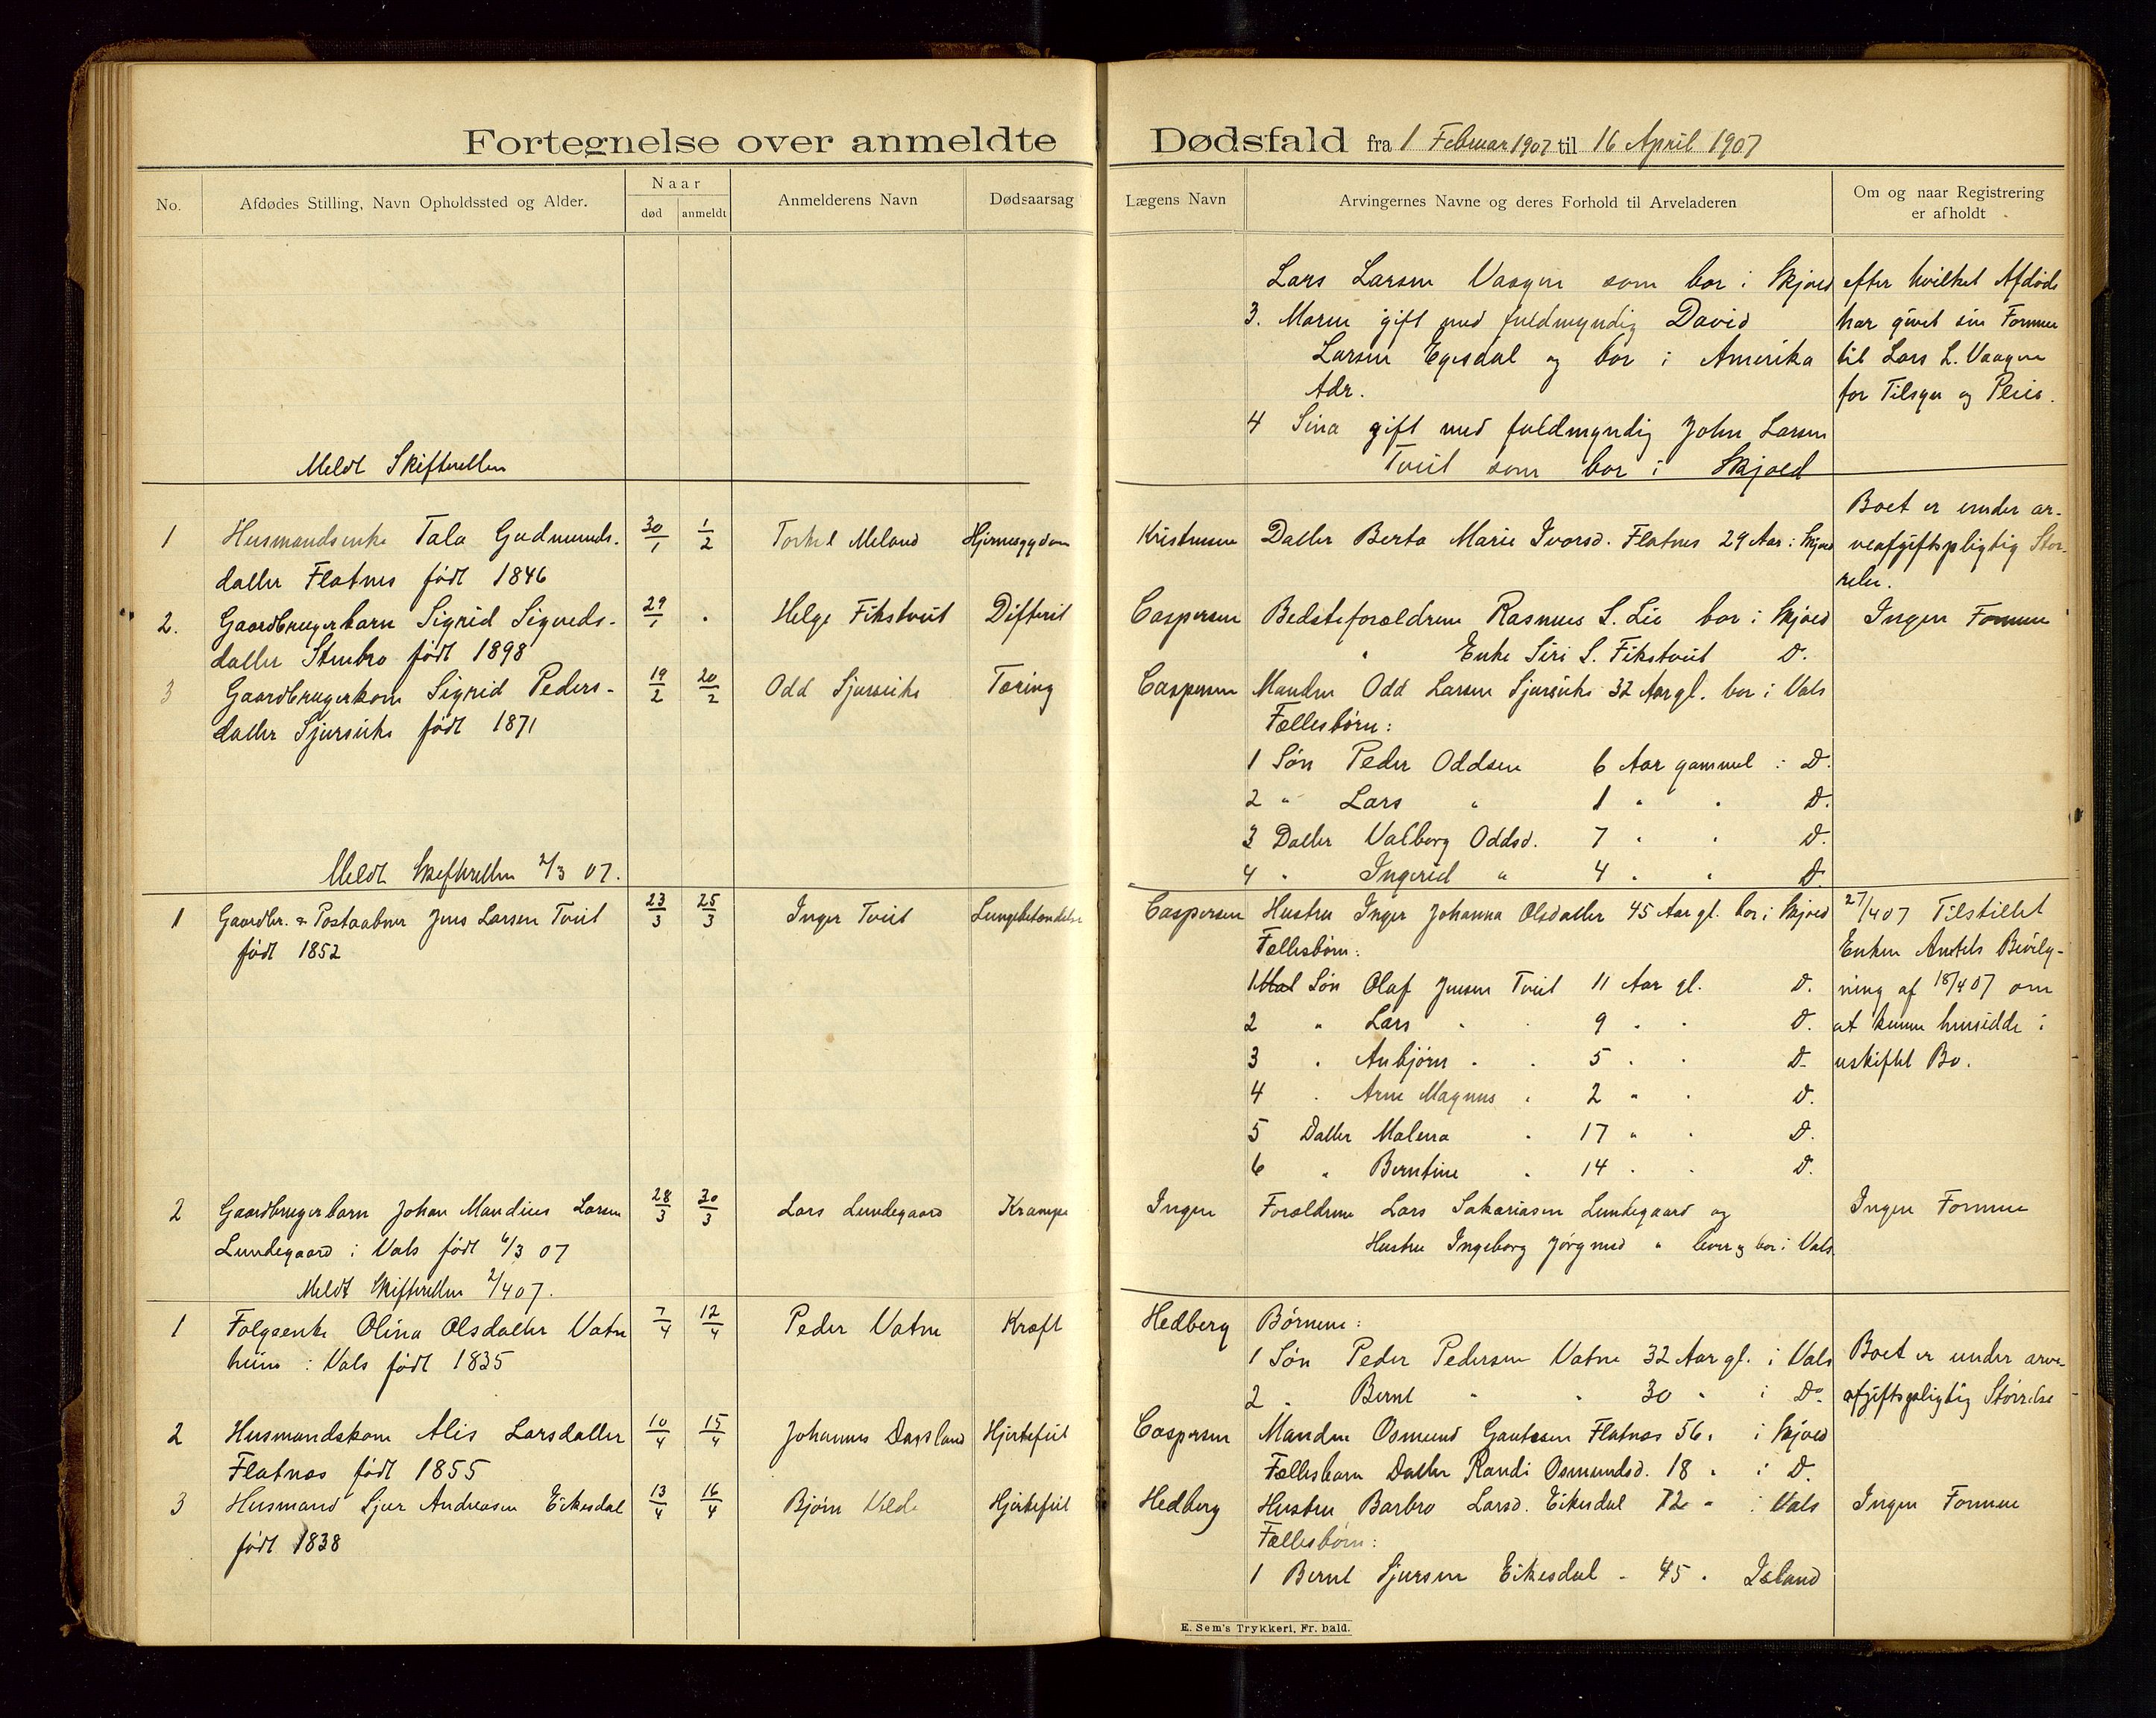 Fortegnelse over anmeldte Dødsfald fra 1 Februar 1907 til 16 April 1907
No.
Afdødes Stilling, Navn Opholdssted og Alder.
Naar
død
anmeldt
Anmelderens Navn
Dødsaarsag
Lægens Navn
Arvingernes Navne og deres Forhold til Arveladeren
Om og naar Registrering
er afholdt
Lars Larsen Vaagen som bor i Skjold
3. Maren gift med fuldmyndig David
Larsen Egesdal og bor i Amerika
Adr.
4 Sina gift med fuldmyndig John Larsen
Tveit som bor i Skjold
efter hvilket Afdøde
har givet sin Formue
til Lars L. Vaagen
for Tilsyn og Pleie.
Meldt Skifteretten
1 Husmandsenke Tala Gudmunds-
datter Flatnes født 1846
30/1 1/2
Torkel Meland
Kristensen
Datter Berta Marie Ivarsd. Flatnes 29 Aar i Skjold
Boet er under ar-
veafgiftspligtig Stør-
relse.
2. Gaardbrugerbarn Sigrid Sigveds-
datter Stenbro født 1898
29/1 "
Helge Fikstveit
Difterit
Caspersen
Bedsteforældrene Rasmus S. Lie bor i Skjold
" Enke Siri S. Fikstveit D.
Ingen Formue
3 Gaardbrugerkone Sigrid Peders-
datter Sjurseike født 1871
19/2 20/2
Odd Sjurseike
Tæring
Caspersen
Manden Odd Larsen Sjurseike 32 Aar gl. bor i Vats
Fællesbørn:
1 Søn Peder Oddsen 6 Aar gammel i D.
2 " Lars " 1 " " D.
3 Datter Valborg Oddsd. 7 " " D.
4 " Ingerid " 4 " " D.
Meldt Skifteretten 2/3 07.
1 Gaardbr. & Postaabner Jens Larsen Tveit
født 1852
23/3 25/3
Inger Tveit
Lungebetændelse
Caspersen
Hustru Inger Johanna Olsdatter 45 Aar gl. bor i Skjold
Fællesbørn:
1 Søn Olaf Jensen Tveit 11 Aar gl. D.
2 " Lars " " 9 " " D.
3 " Anbjørn " " 5 " " D.
4 " Arne Magnus " 2 " " D.
5 Datter Malena " 17 " " D.
6 " Berntine " 14 " " D.
27/4 07 Tilstillet
Enken Amtets Bevilg-
ning af 18/4 07 om
at kunne hensidde i
uskiftet Bo.
2 Gaardbrugerbarn Johan Mandius Larsen
Lundegaard i Vats født 6/3 07
28/3 30/3
Lars Lundegaard
Krampe
Ingen
Forældrene Lars Sakariasen Lundegaard og
Hustru Ingeborg " lever og bor i Vats
Ingen Formue
Meldt Skifteretten 2/4 07.
1 Folgeenke Olina Olsdatter Vatne
heim i Vats født 1835
7/4 12/4
Peder Vatne
Kræft
Hedberg
Børnene:
1 Søn Peder Pedersen Vatne 32 Aar gl. i Vats
2 " Bernt " " 30 " i Do
Boet er under arve-
afgiftspligtig Størrelse
2 Husmandskone Alis Larsdatter
Flatnæs født 1855
10/4 15/4
Johannes Dagsland
Hjertefeil
Caspersen
Manden Osmund Gautesen Flatnæs 56 " i Skjold
Fællesbarn Datter Randi Osmundsd. 18 " i D.
3 Husmand Sjur Andreasen Eikesdal
født 1838
13/4 16/4
Bjørn Velde
Hjertefeil
Hedberg
Hustru Barbro Larsd. Eikesdal 72 " i Vats
Fællesbørn:
1 Bernt Sjursen Eikesdal " 45 " Island
Ingen Formue
E. Sem's Trykkeri, Fr. hald.